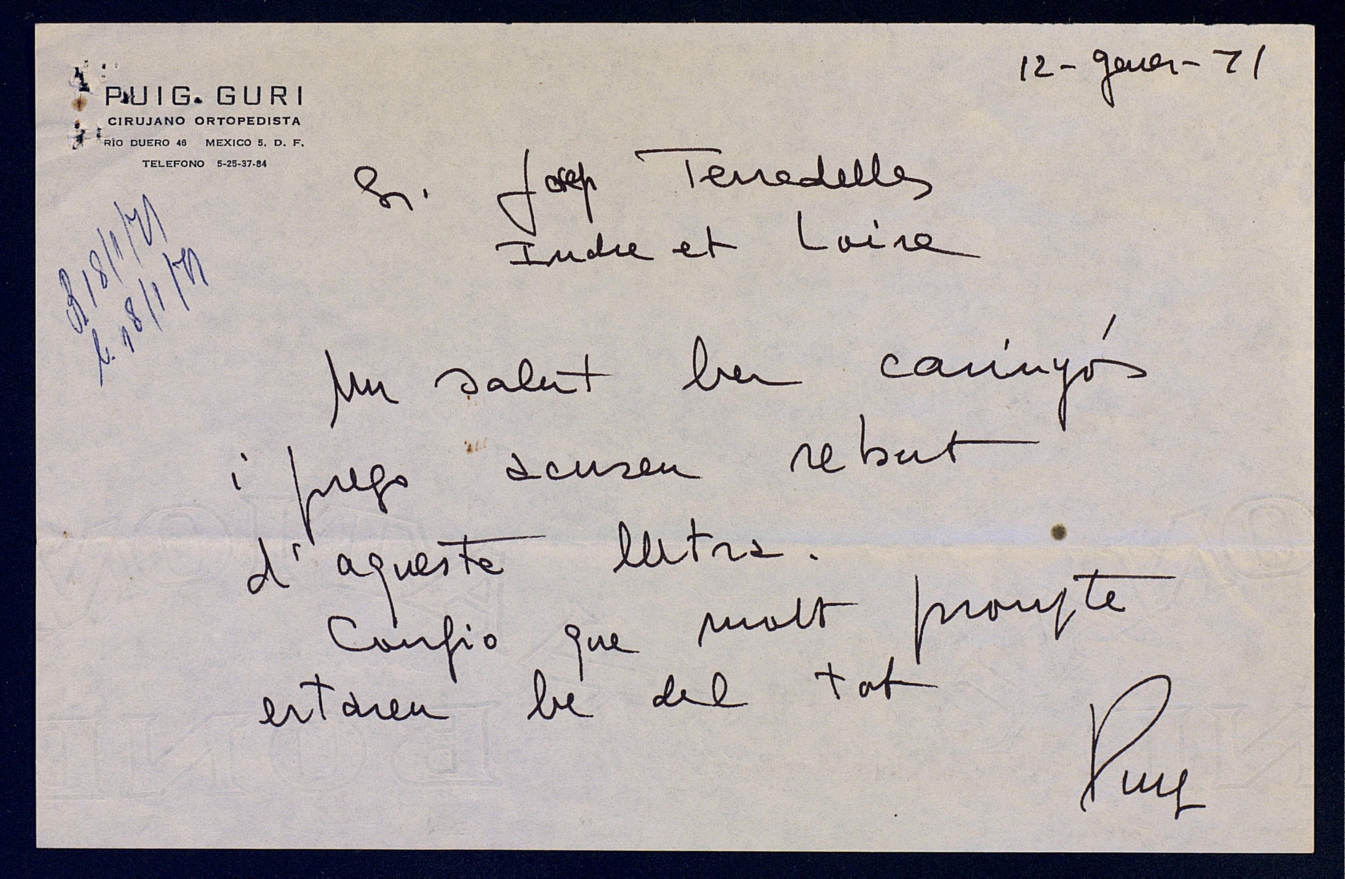 PUIG. GURI
CIRUJANO ORTOPEDISTA
RIO DUERO 46 MEXICO 5, D. F.
TELEFONO 5-25-37-84
12 - gener - 71
R 18/1/71
C. 18/1/71
Sr. Josep Terradelles
Indre et Loire
Un salut ben carinyós
i prego acuseu rebut
d'aqueste lletra.
Confio que molt prompte
estareu be del tot
Puig